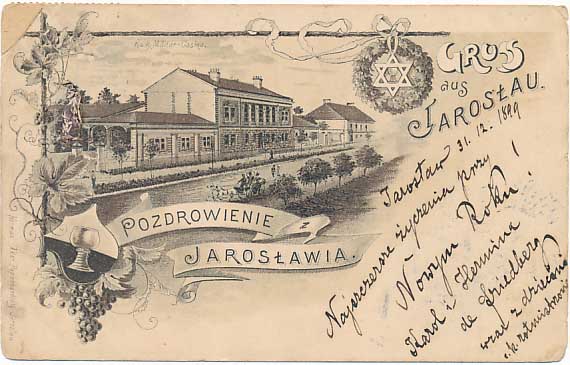 K.u.k. Militär-Casino.
GRUSS
aus
JAROSŁAU.
POZDROWIENIE
z
JAROSŁAWIA.
Jarosław 31.12.1899
Najszczersze życzenia przy
Nowym Roku!
Karol i Hermina
de Friedberg
wraz z dziećmi